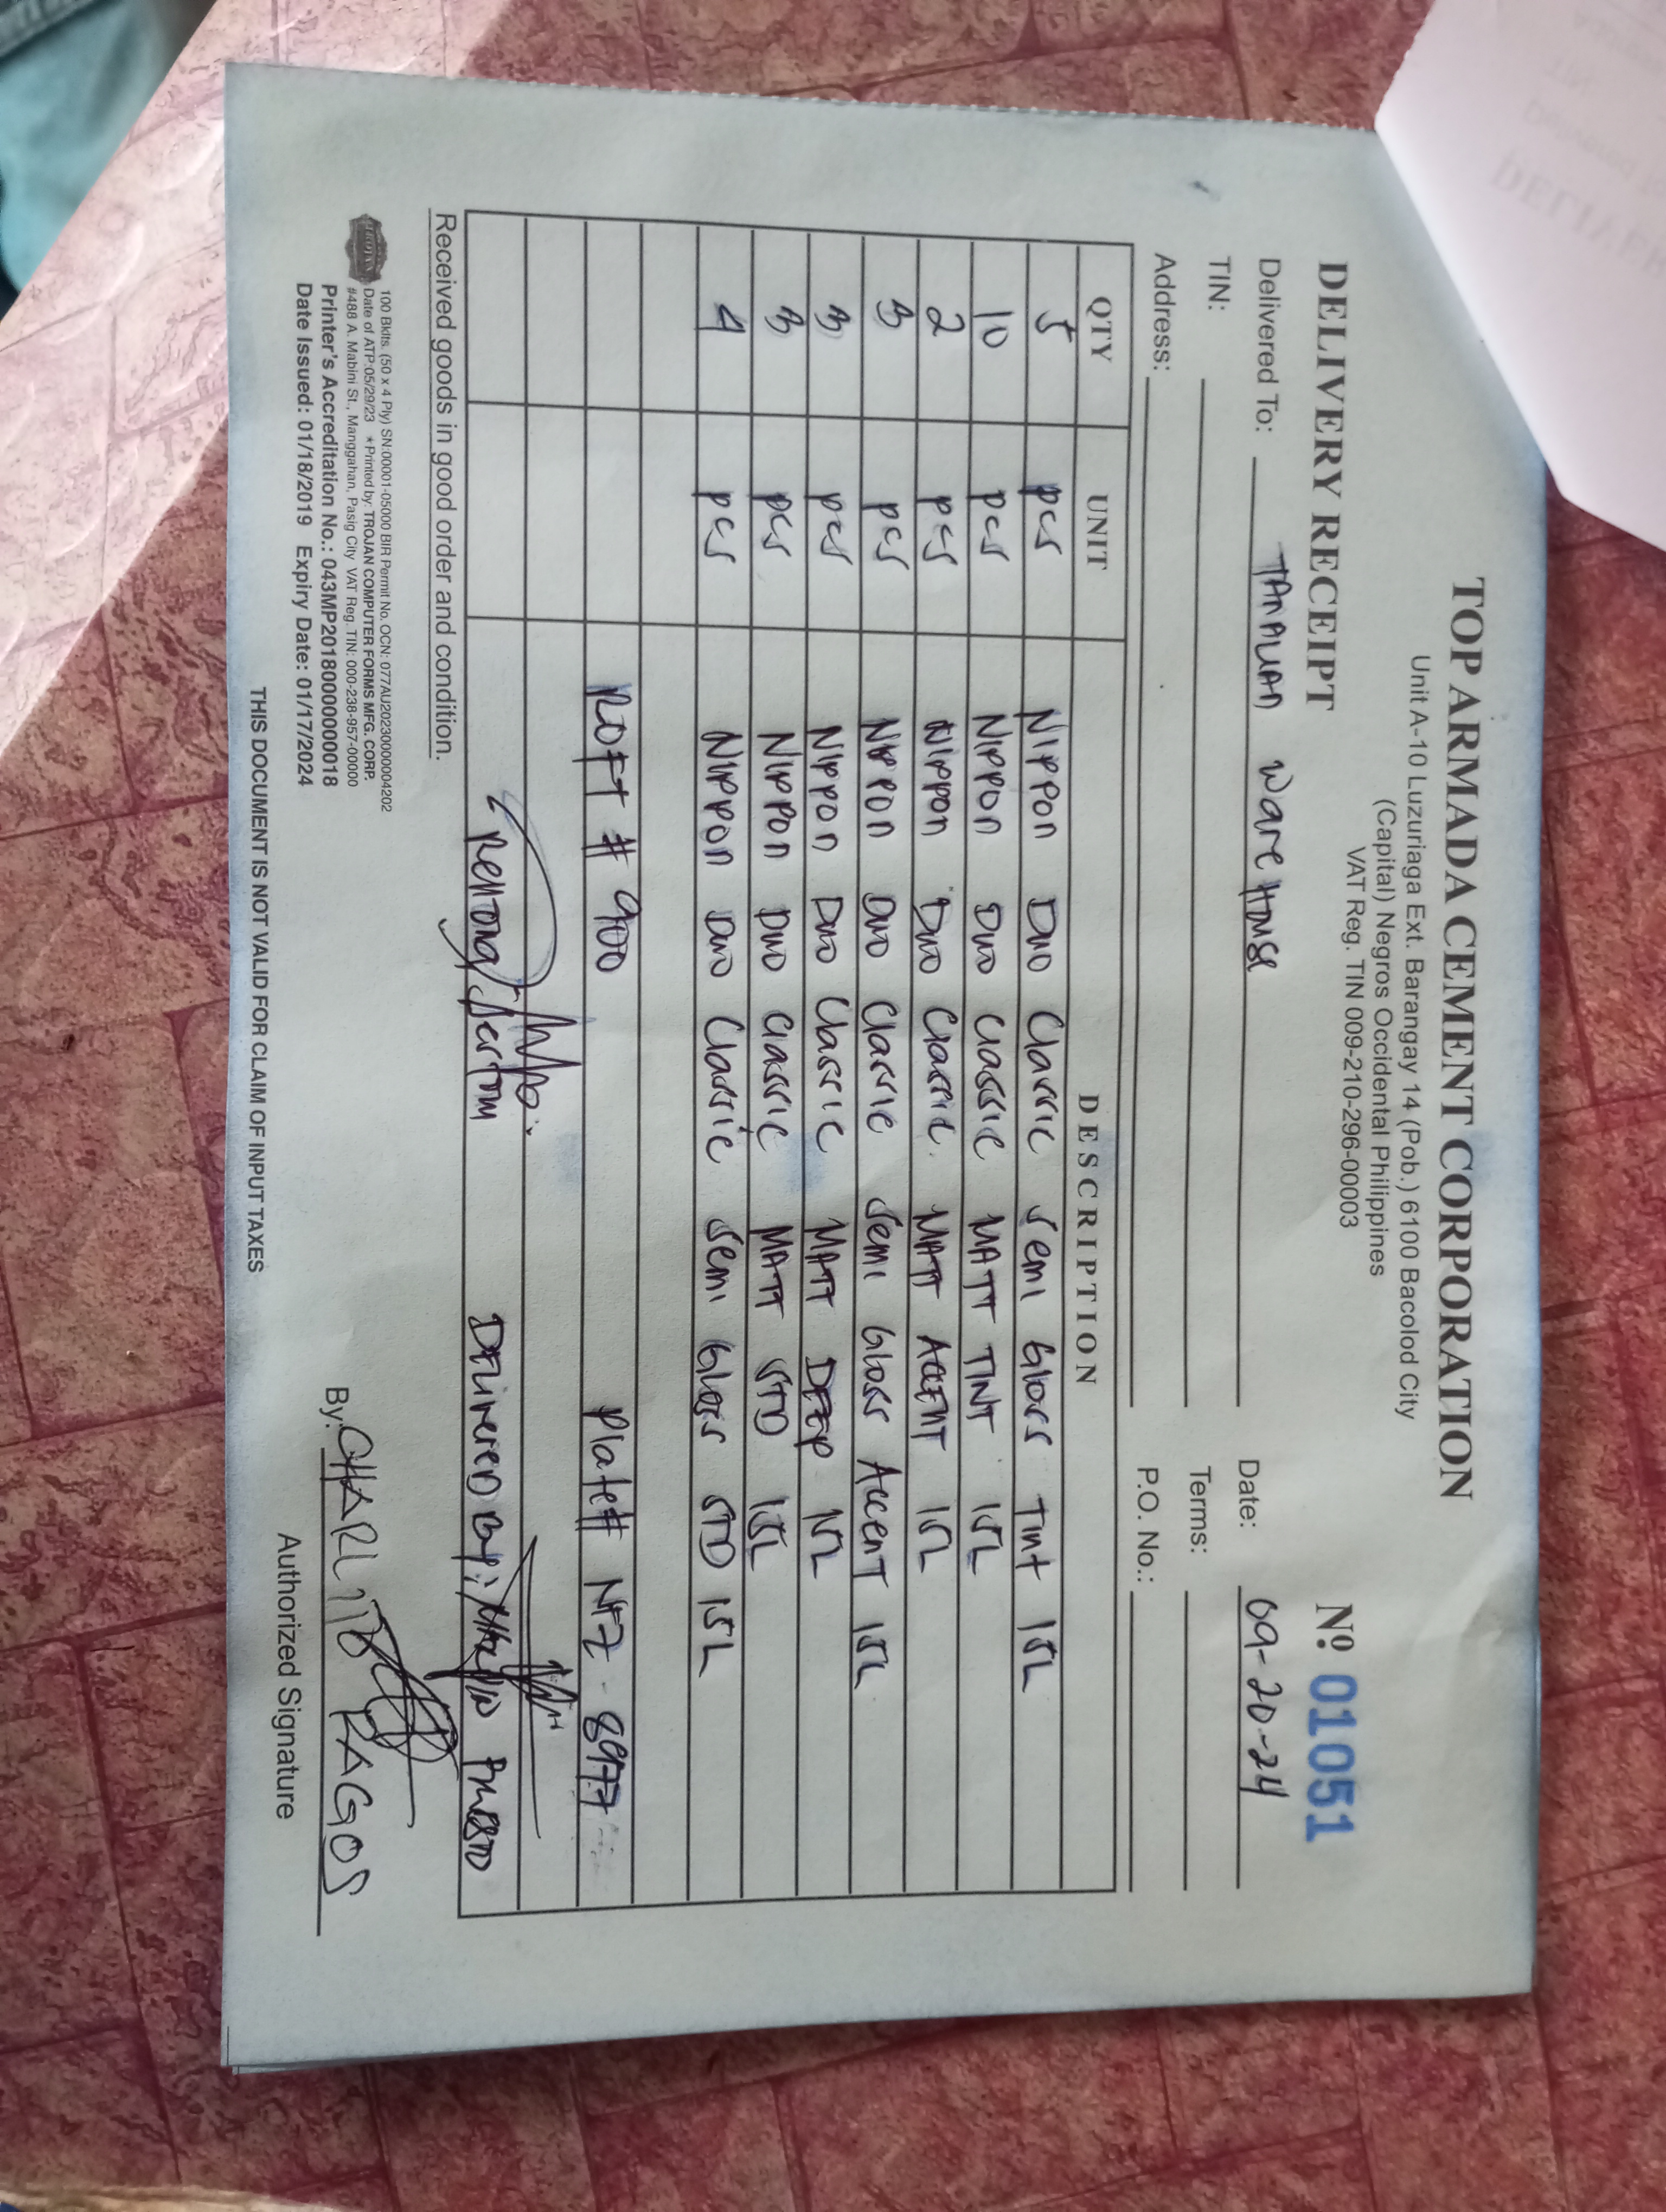 TOP ARMADA CEMENT CORPORATION
Unit A-10 Luzuriaga Ext. Barangay 14 (Pob.) 6100 Bacolod City
(Capital) Negros Occidental Philippines
VAT Reg. TIN 009-210-296-00003
DELIVERY RECEIPT Nº 01051
Delivered To: TANAUAN WareHouse Date: 09-20-24
TIN: Terms:
Address: P.O. No.:
QTY UNIT DESCRIPTION
5 pcs NIPPON DUO Classic Semi Gloss Tint 15L
10 pcs NIPPON DUO Classic MATT TINT 15L
2 pcs NIPPON DUO Classic MATT ACCENT 15L
3 pcs NIPPON DUO Classic Semi Gloss Accent 15L
3 pcs NIPPON DUO Classic MATT DEEP 15L
3 pcs NIPPON DUO Classic MATT STD 15L
4 pcs NIPPON DUO Classic Semi Gloss STD 15L
ROFT # 900 Plate# NFZ-8977
DELIVERED By:
Received goods in good order and condition.
TROJAN
100 Bklts. (50 x 4 Ply) SN:00001-05000 BIR Permit No. OCN: 077AU20230000004202
Date of ATP:05/29/23 *Printed by: TROJAN COMPUTER FORMS MFG. CORP.
#488 A. Mabini St., Manggahan, Pasig City VAT Reg. TIN: 000-238-957-00000
Printer's Accreditation No.: 043MP20180000000018
Date Issued: 01/18/2019 Expiry Date: 01/17/2024
By: CHARLITO RAGOS
Authorized Signature
THIS DOCUMENT IS NOT VALID FOR CLAIM OF INPUT TAXES